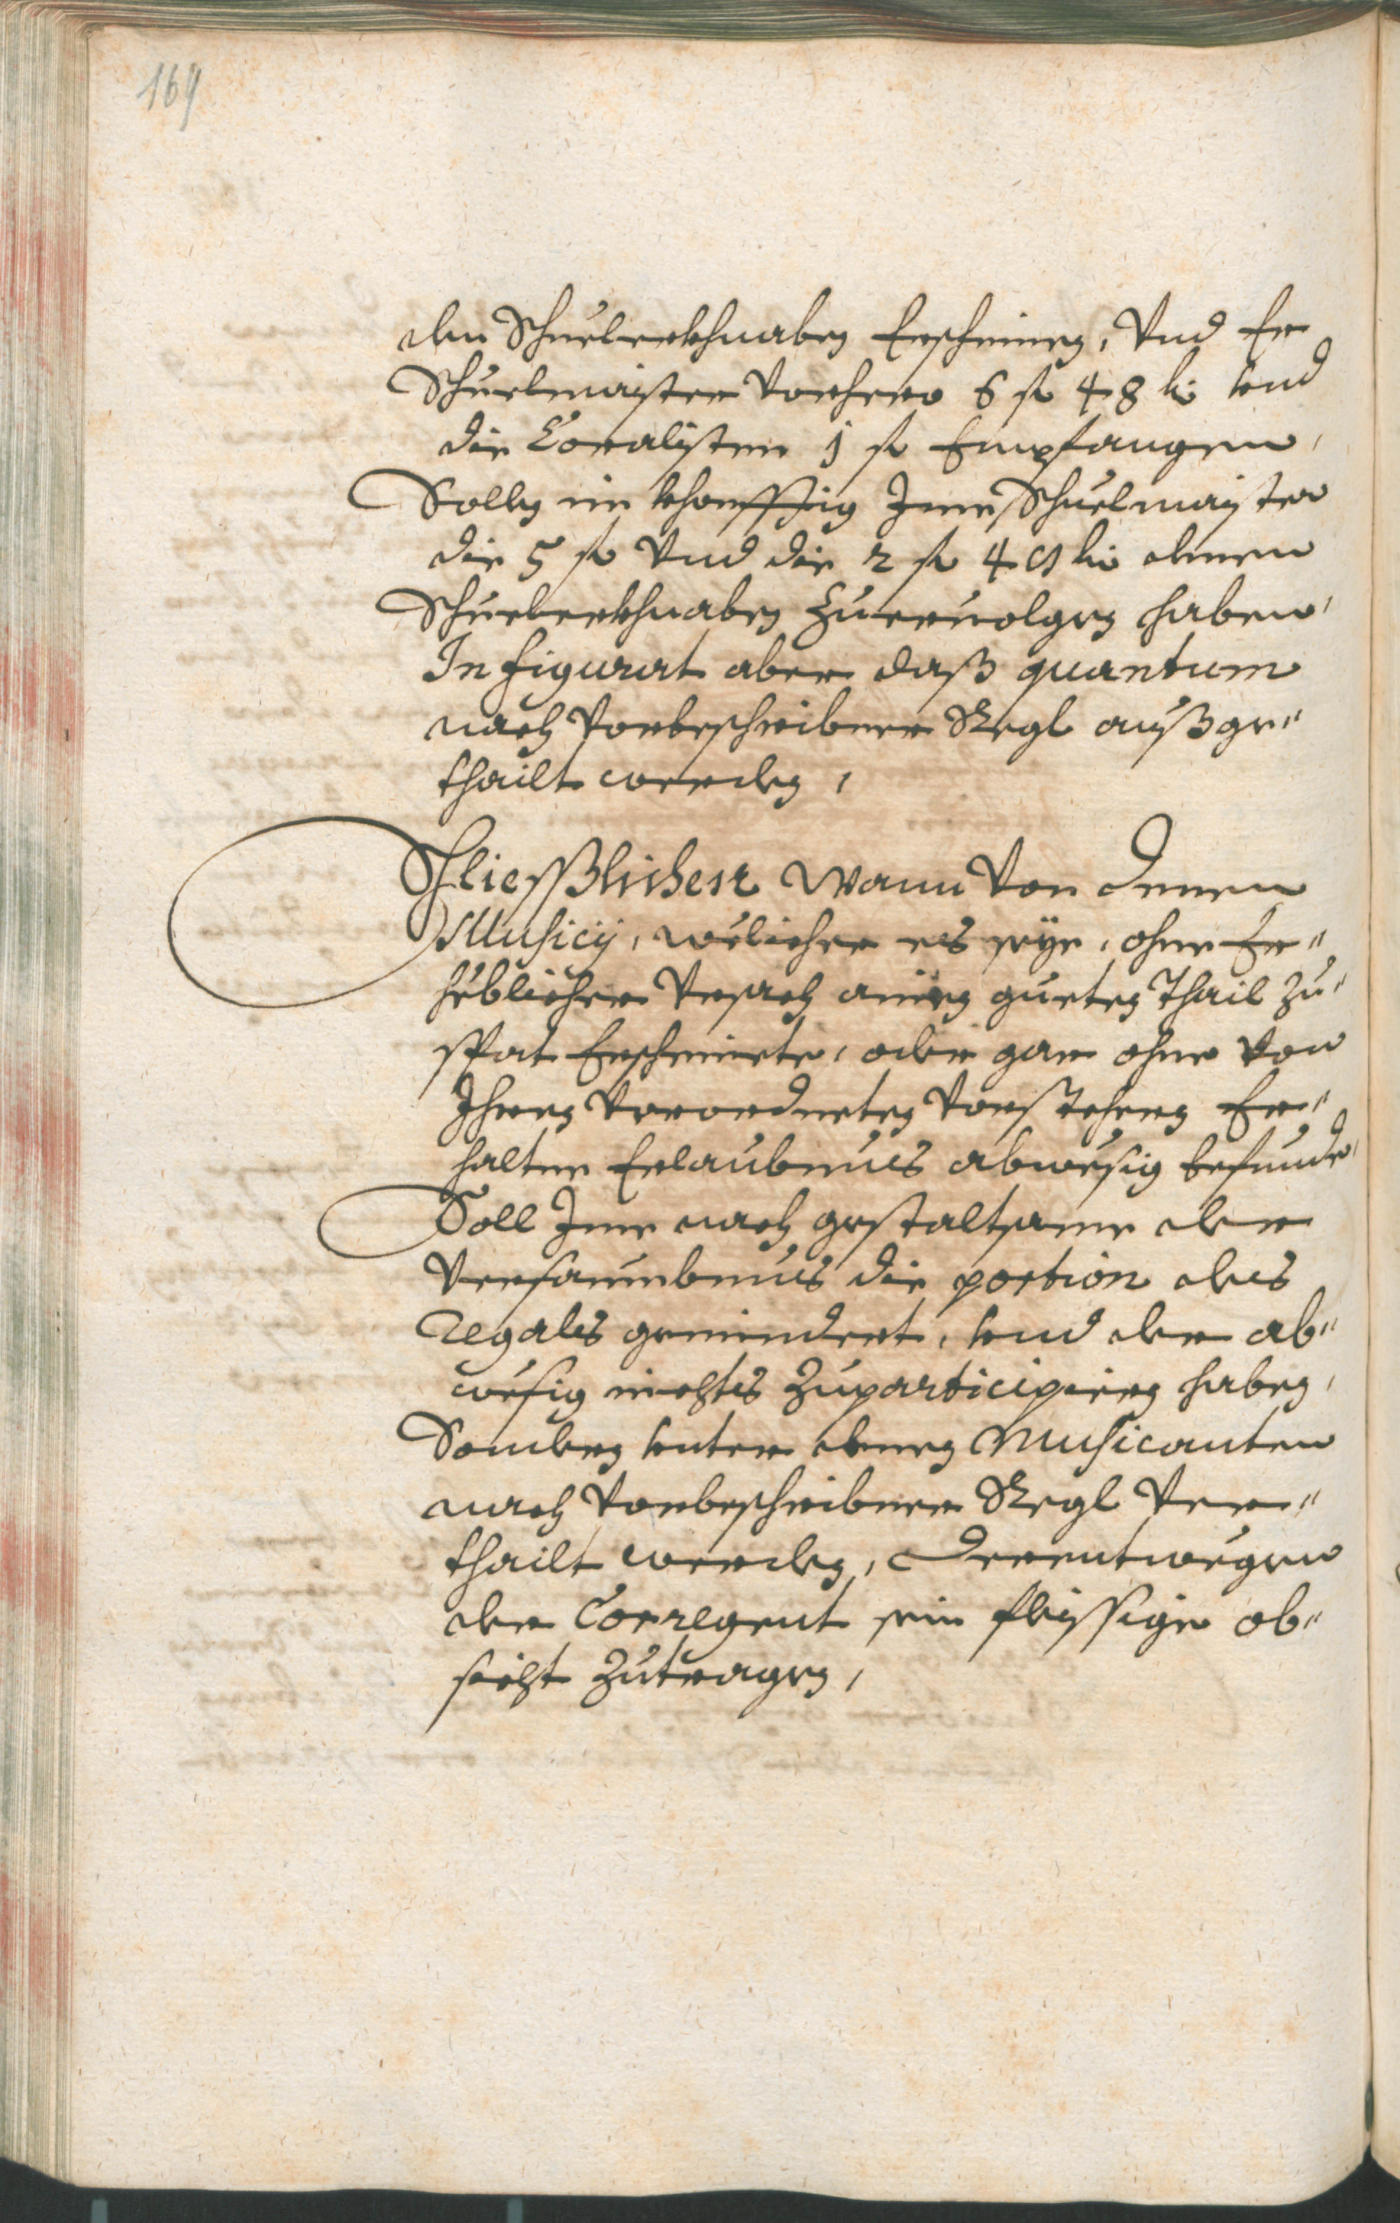 169
den Schuelerkhnaben Erscheinen, Vnd Er
Schuelmaister Vorhero 6 fl 48 kr vnd
die Coralisten 1 fl Empfangen,
Sollen in khonfftig Jme Schuelmaister
die 5 fl Vnd die 2 fl 40 kr denen
Schuelerkhnaben Zueruolgen haben,
In figurat aber daß quantum
nach Vorbeschribner Regl außge"
thailt werden,
Schliesslichen Wann Von denen
Musicij, welicher es seye, ohne Er"
heblicher Vrsach ainen gueten Thail Zu"
spat Erscheinete, oder gar ohne Von
Jhren Verordneten Vorstehern Er"
halter Erlaubnus abwesig befunde,
Soll Jme nach gestaltsame der
Versaumbnus die portion des
Regales gemindert, vnd der ab"
wesig nichts Zuparticipiern haben,
Sondern vnter denen Musicanten
nach Vorbeschribner Regl Ver"
thailt werden, Derentwegen
der Corregent sein fleissige ob"
sicht Zutragen,